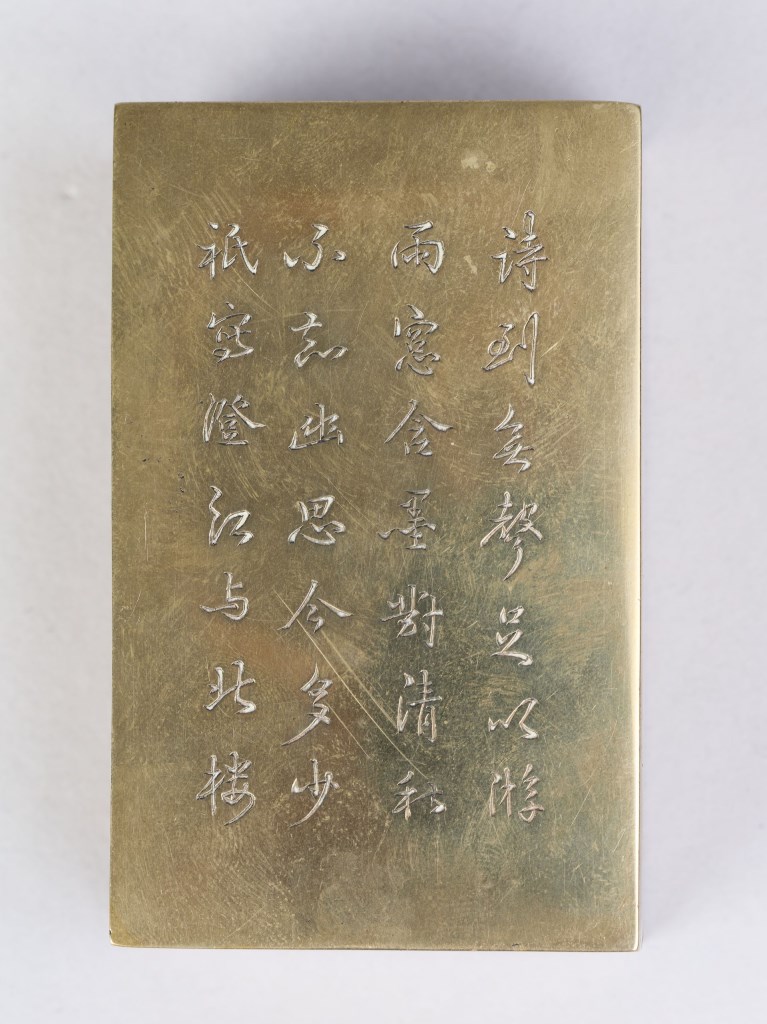 詩到無聲足以游
雨窻含墨對清秋
不知幽思今多少
祇寫澄江与北楼